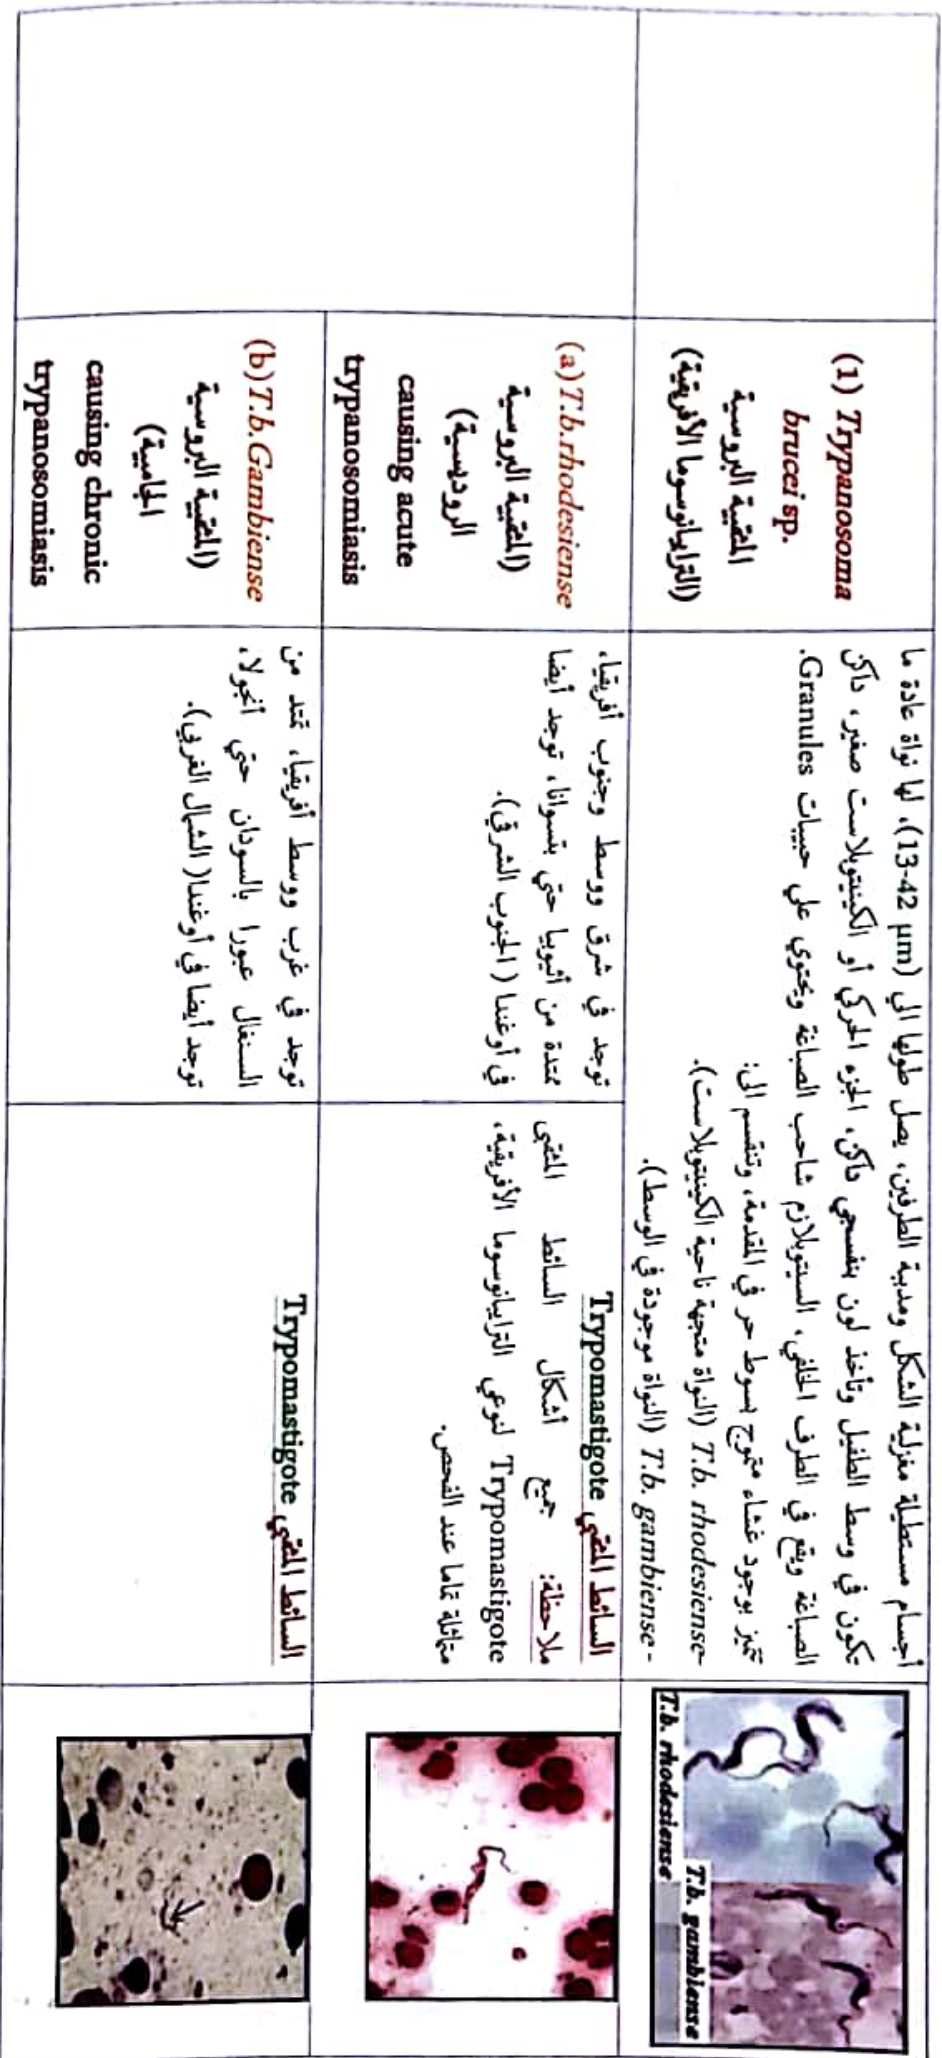 (1) Trypanosoma
brucei sp.
المثقبية البروسية
(الترايبانوسوما الأفريقية)
أجسام مستطيلة مغزلية الشكل ومدببة الطرفين، يصل طولها الي (13-42 µm)، لها نواة عادة ما
تكون في وسط الطفيل وتأخذ لون بنفسجي داكن، الجزء الحركي أو الكينيتوبلاست صغير، داكن
الصباغة ويقع في الطرف الخلفي، السيتوبلازم شاحب الصباغة ويحتوي علي حبيبات Granules.
تتميز بوجود غشاء متموج بسوط حر في المقدمة، وتنقسم الى:
-T.b. rhodesiense (النواة متجهة ناحية الكينيتوبلاست).
-T.b. gambiense (النواة موجودة في الوسط).
T.b. rhodesiense
T.b. gambiense
(a) T.b.rhodesiense
(المثقبية البروسية
الروديسية)
causing acute
trypanosomiasis
توجد في شرق ووسط وجنوب أفريقيا،
ممتدة من أثيوبيا حتي بتسوانا، توجد أيضا
في أوغندا (الجنوب الشرقي).
السائط المثقبي Trypomastigote
ملاحظة: جميع أشكال السائط المثقبي
Trypomastigote لنوعي الترايبانوسوما الأفريقية،
متماثلة تماما عند الفحص.
(b) T.b.Gambiense
(المثقبية البروسية
الجامبية)
causing chronic
trypanosomiasis
توجد في غرب ووسط أفريقيا، تمتد من
السنغال عبورا بالسودان حتي أنجولا،
توجد أيضا في أوغندا( الشمال الغربي).
السائط المثقبي Trypomastigote